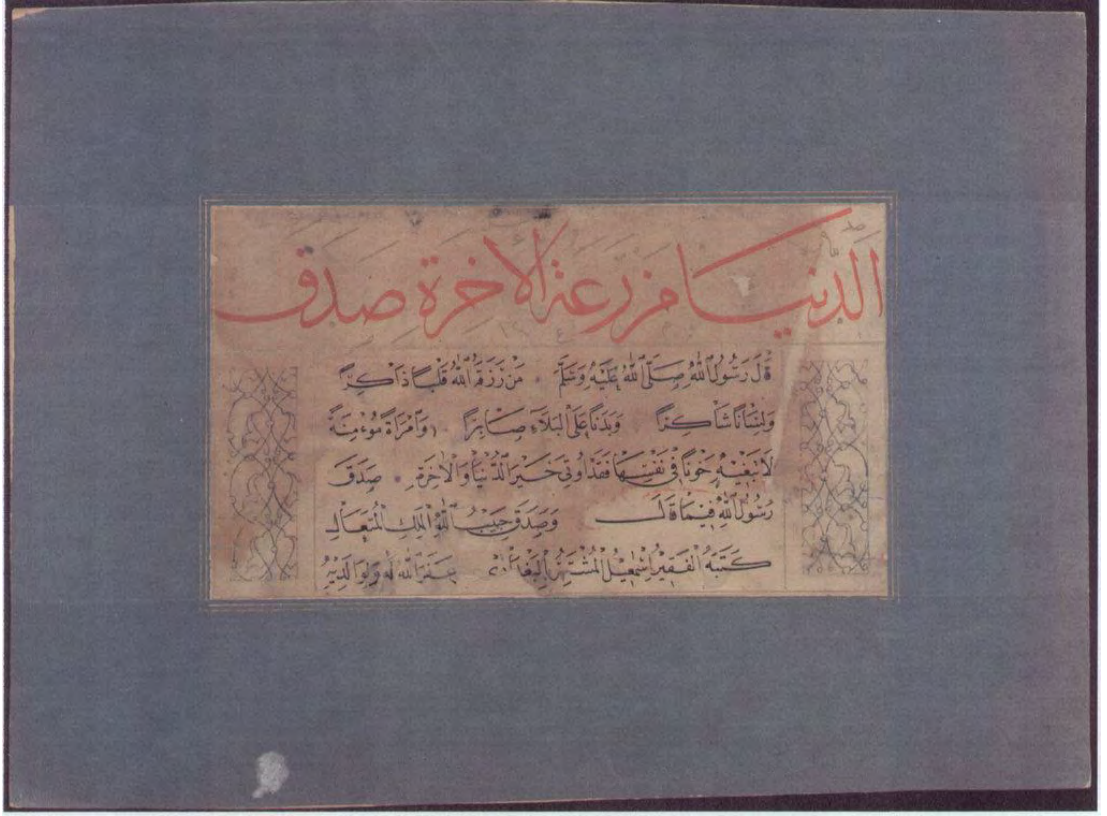 الدنيا مزرعة الأخرة صدق
قَالَ رَسُولُ اللهِ صَلَّى اللهُ عَلَيْهِ وَسَلَّمَ مَنْ رَزَقَهُ اللهُ قَلْبًا ذَاكِرًا
وَلِسَانًا شَاكِرًا وَبَدَنًا عَلَى الْبَلَاءِ صَابِرًا وَامْرَأَةً مُوءْمِنَةً
لَا تَبْغِيهِ خَوْنًا فِي نَفْسِهَا فَقَدْ اُوتِيَ خَيْرَ الدُّنْيَا وَالْاٰخِرَةِ صَدَقَ
رَسُولُ اللهِ فِيمَا قَالَ وَصَدَقَ حَبِيبُ اللهِ الْمَلِكِ الْمُتَعَالِ
كَتَبَهُ الْفَقِيرُ اِسْمٰعِيلُ الْمُشْتَهِرُ غَفَرَ اللهُ لَهُ وَلِوَالِدَيْهِ